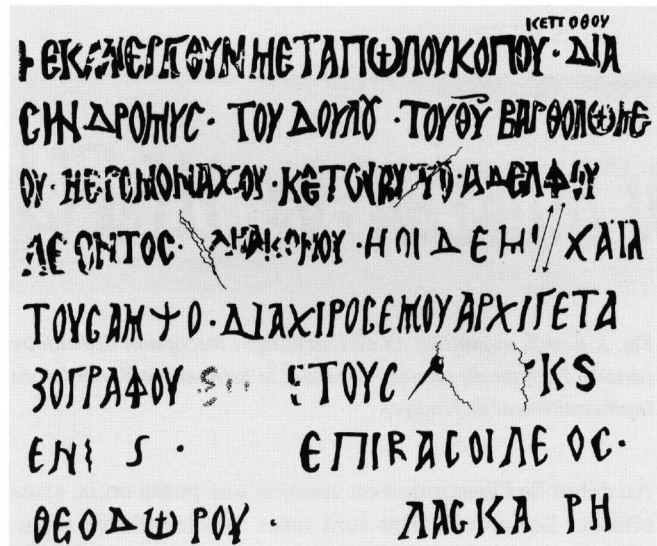 ΚΕΠΟΘΟΥ
ΕΚΑΝΕΡΓΕΥΝ ΜΕΤΑΠΟΛΟΥΚΟΠΟΥ · ΔΙΑ
CΗΝΔΡΟΜΥC · ΤΟΥ ΔΟΥΛȢ · ΤΟΥ ΘΥ ΒΑΡΘΟΛΩΜΕ
ΟΥ · ΗΕΡΟΜΟΝΑΧΟΥ · ΚΕ ΑΔΕΛΦΟΥ
ΛΕΟΝΤΟC · ΔΗΑΚΟΝΟΥ · ΗΟΙΔΕΗ ΧΑΙΛ
ΤΟΥCΑΜΨΟ · ΔΙΑΧΙΡΟCΕΜΟΥΑΡΧΙΓΕΤΑ
ΖΟΓΡΑΦΟΥ ΕΤΟΥC ΚS
ΕΝΙ S · ΕΠΙΒΑCΟΙΛΕΟC ·
ΘΕΟΔΩΡΟΥ · ΛΑCΚΑΡΗ